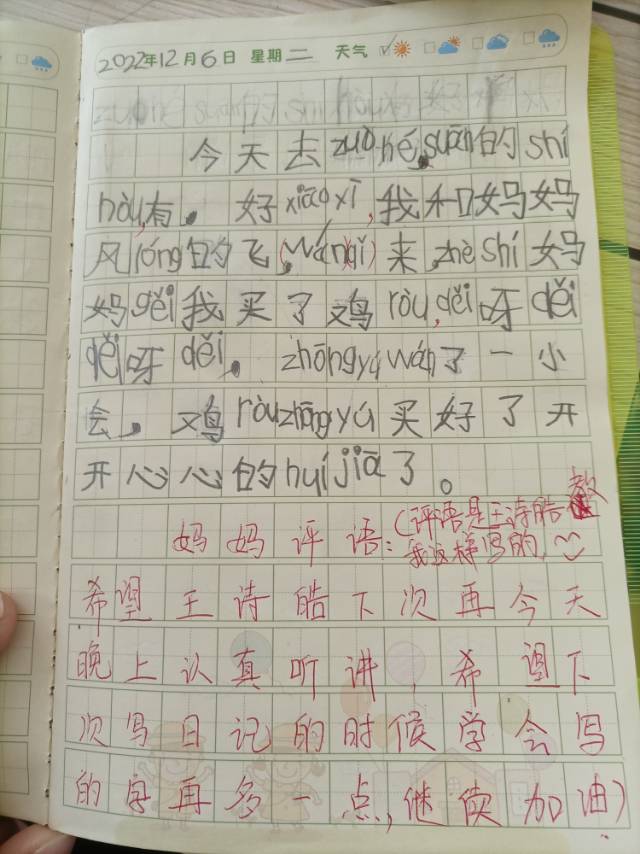 2022年12月6日 星期二 天气
今天去zuò hé suān的shí
hòu,有。好xiāo xī,我和妈妈
风lóng的飞,(wáng qí)来,zhè shí妈
妈gěi我买了鸡ròu,děi呀děi
děi呀děi。zhōng yú wán了一小
会。鸡ròu zhōng yú买好了开
开心心的huí jiā了。
妈妈评语:(评语是王诗皓教
我这样写的
希望王诗皓下次再今天
晚上认真听讲,希望下
次写日记的时候学会写
的字再多一点,继续加油)